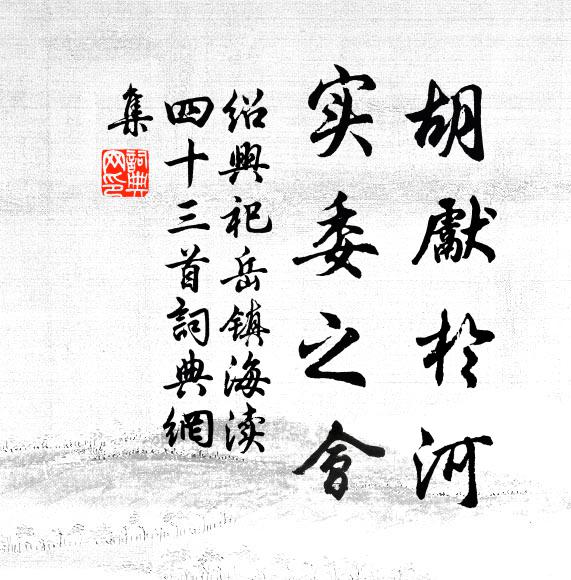 胡獻於河
实委之會
绍興祀岳镇海渎
四十三首詞典網
集
詞典
网印